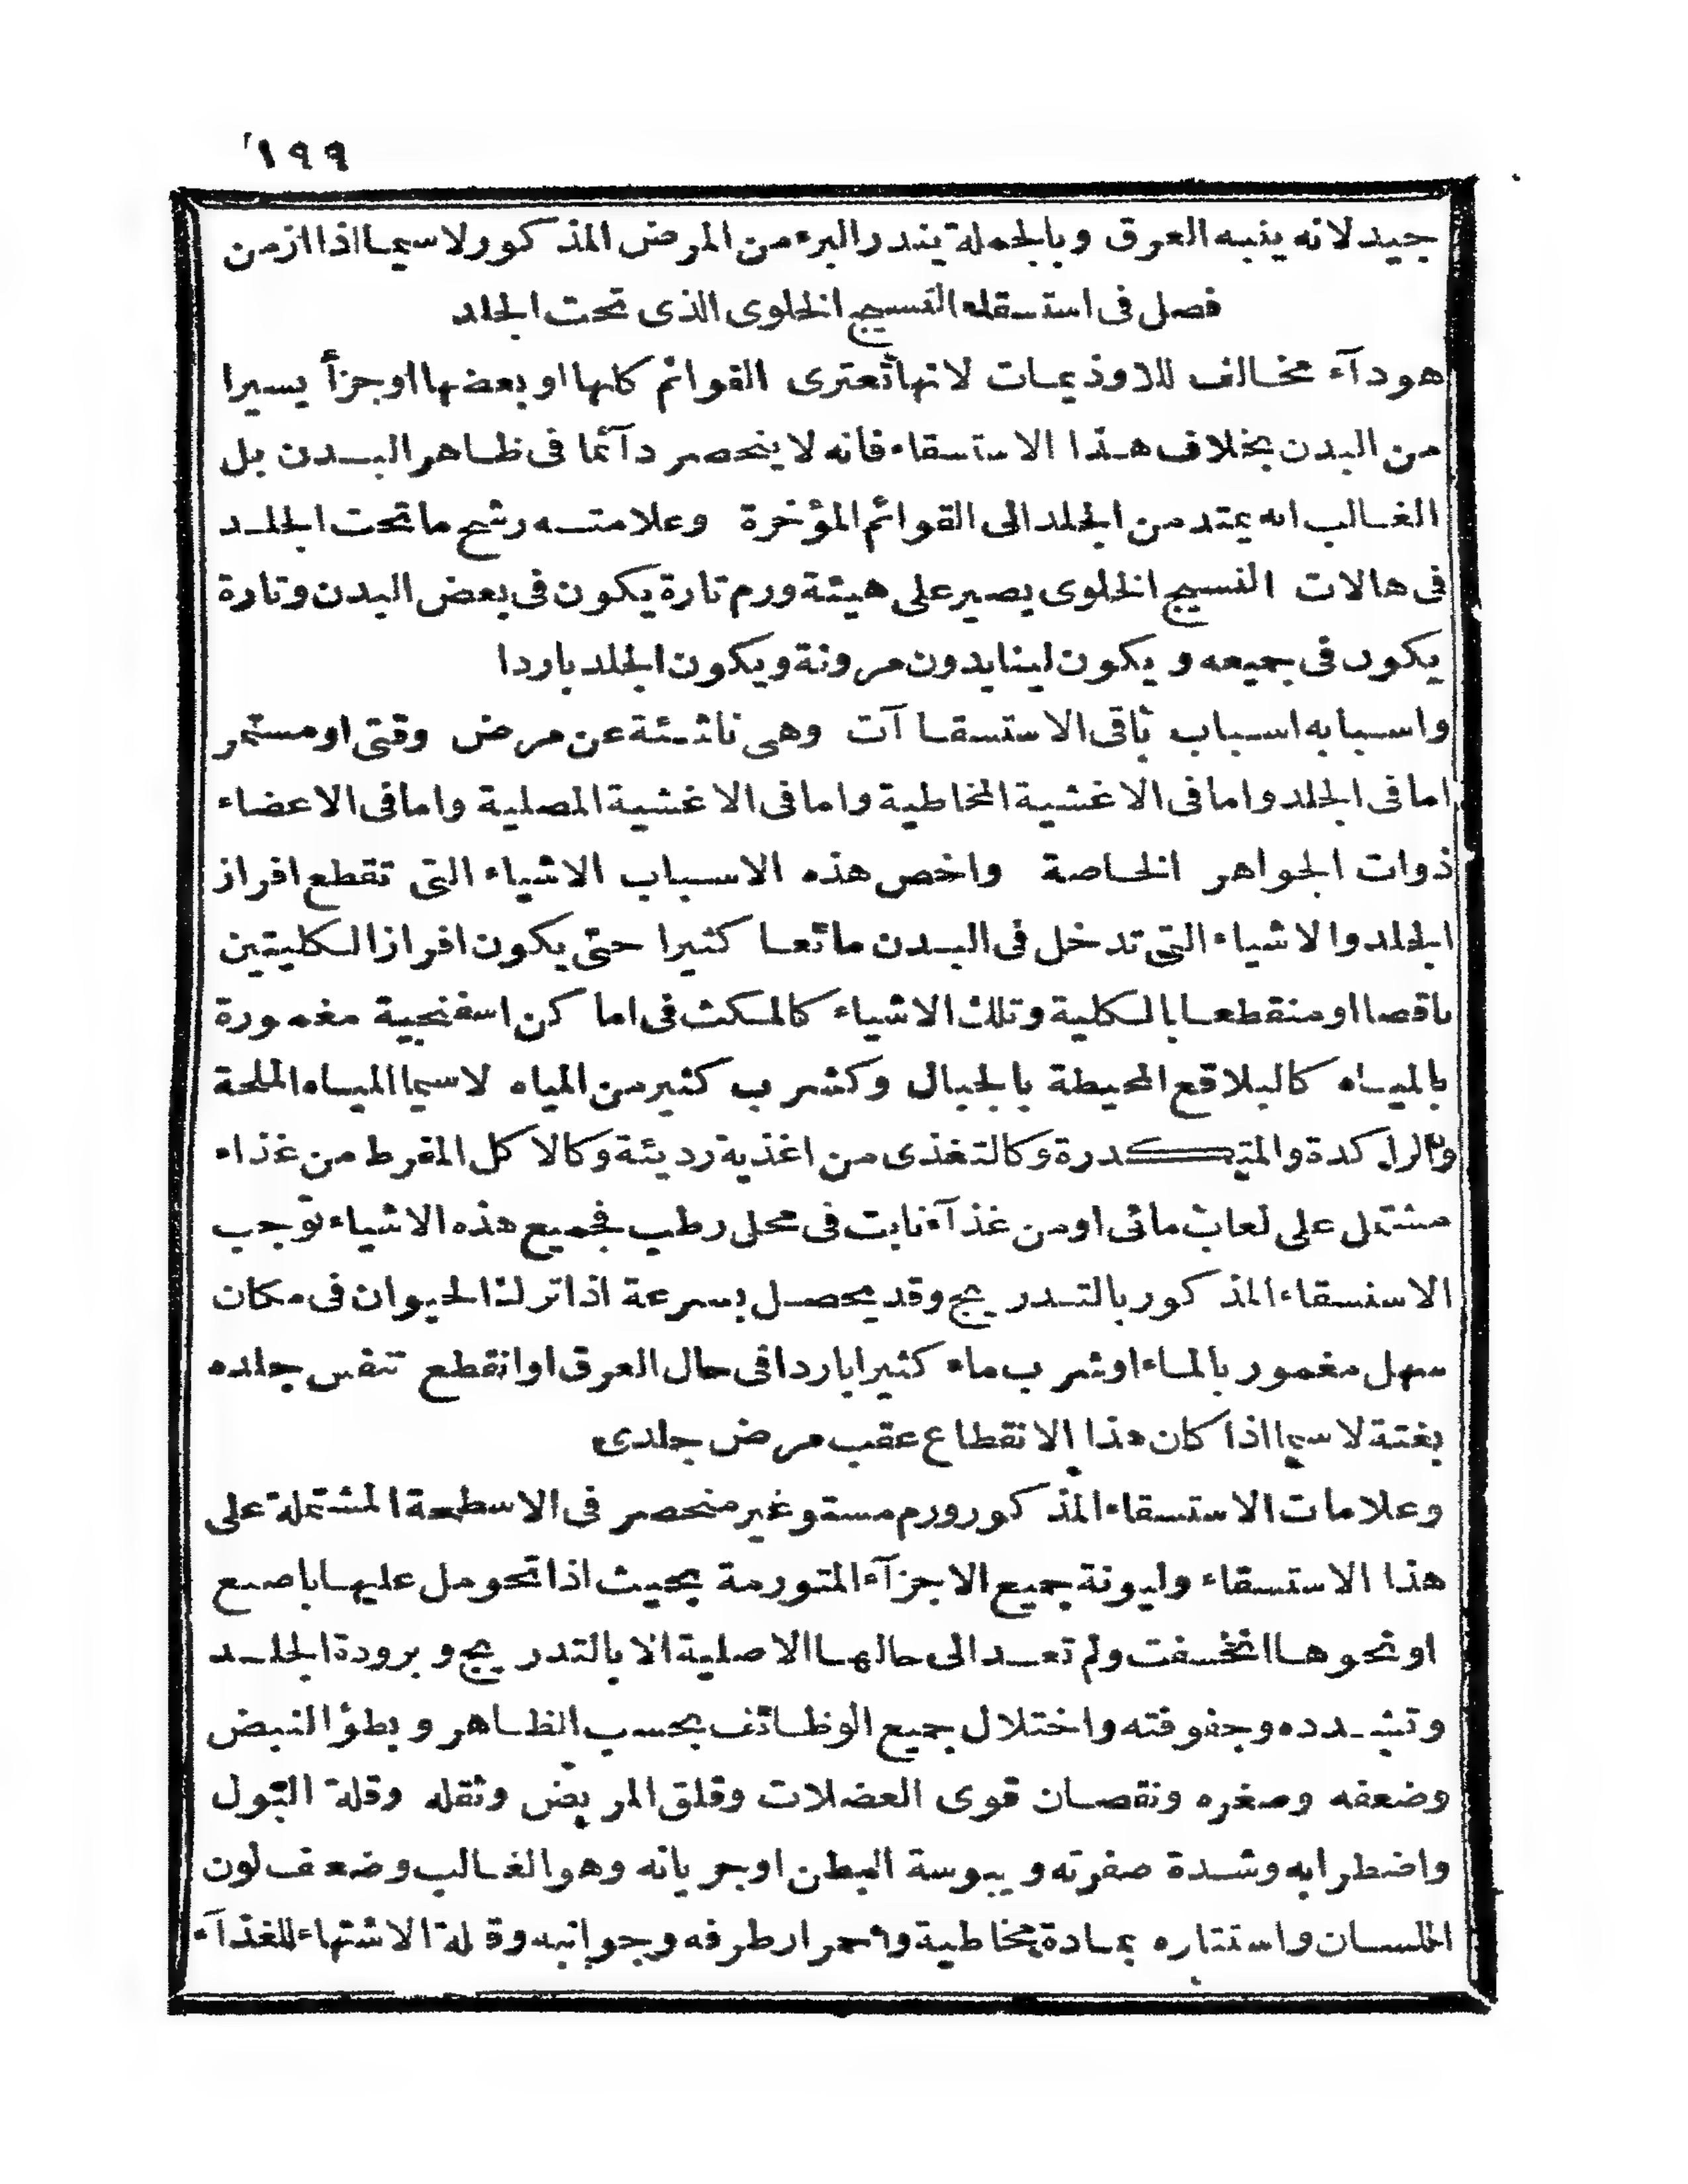 ١٩٩
جيد لانه ينبه العرق وبالجملة يندر البرء من المرض المذكور لا سيما اذا ازمن
فصل فى استسقاء النسيج الخلوى الذى تحت الجلد
هو دآء مخالف للاوذيمات لانها تعترى القوائم كلها او بعضها او جزأ يسيرا
من البدن بخلاف هذا الاستسقاء فانه لا ينحصر دآئما فى ظاهر البدن بل
الغالب انه يمتد من الجلد الى القوائم المؤخرة وعلامته رشح ما تحت الجلد
فى هالات النسيج الخلوى يصير على هيئة ورم تارة يكون فى بعض البدن وتارة
يكون فى جميعه ويكون لينا بدون مرونة ويكون الجلد باردا
واسبابه اسباب باقى الاستسقاآت وهى ناشئة عن مرض وقتى او مستمر
اما فى الجلد واما فى الاغشية المخاطية واما فى الاغشية المصلية واما فى الاعضاء
ذوات الجواهر الخاصة واخص هذه الاسباب الاشياء التى تقطع افراز
الجلد والاشياء التى تدخل فى البدن مائعا كثيرا حتى يكون افراز الكليتين
ناقصا او منقطعا بالكلية وتلك الاشياء كالمكث فى اماكن اسفنجية مغمورة
بالمياه كالبلاقع المحيطة بالجبال وكشرب كثير من المياه لا سيما المياه الملحة
والراكدة والمتكدرة وكالتغذى من اغذية رديئة وكالاكل المفرط من غذاء
مشتمل على لعاب مائى او من غذآء نابت فى محل رطب فجميع هذه الاشياء توجب
الاستسقاء المذكور بالتدريج وقد يحصل بسرعة اذا ترك الحيوان فى مكان
سهل مغمور بالماء او شرب ماء كثيرا باردا فى حال العرق او انقطع تنفس جلده
بغتة لا سيما اذا كان هذا الانقطاع عقب مرض جلدى
وعلامات الاستسقاء المذكور ورم مستو غير منحصر فى الاسطحة المشتملة على
هذا الاستسقاء وليونة جميع الاجزآء المتورمة بحيث اذا تحومل عليها باصبع
او نحوها انخسفت ولم تعد الى حالها الاصلية الا بالتدريج وبرودة الجلد
وتشدده وجفوفته واختلال جميع الوظائف بحسب الظاهر وبطؤ النبض
وضعفه وصغره ونقصان قوى العضلات وقلق المريض وثقله وقلة البول
واضطرابه وشدة صفرته ويبوسة البطن او جريانه وهو الغالب وضعف لون
اللسان واستتاره بمادة مخاطية واحمرار طرفه وجوانبه وقلة الاشتهاء للغذآء